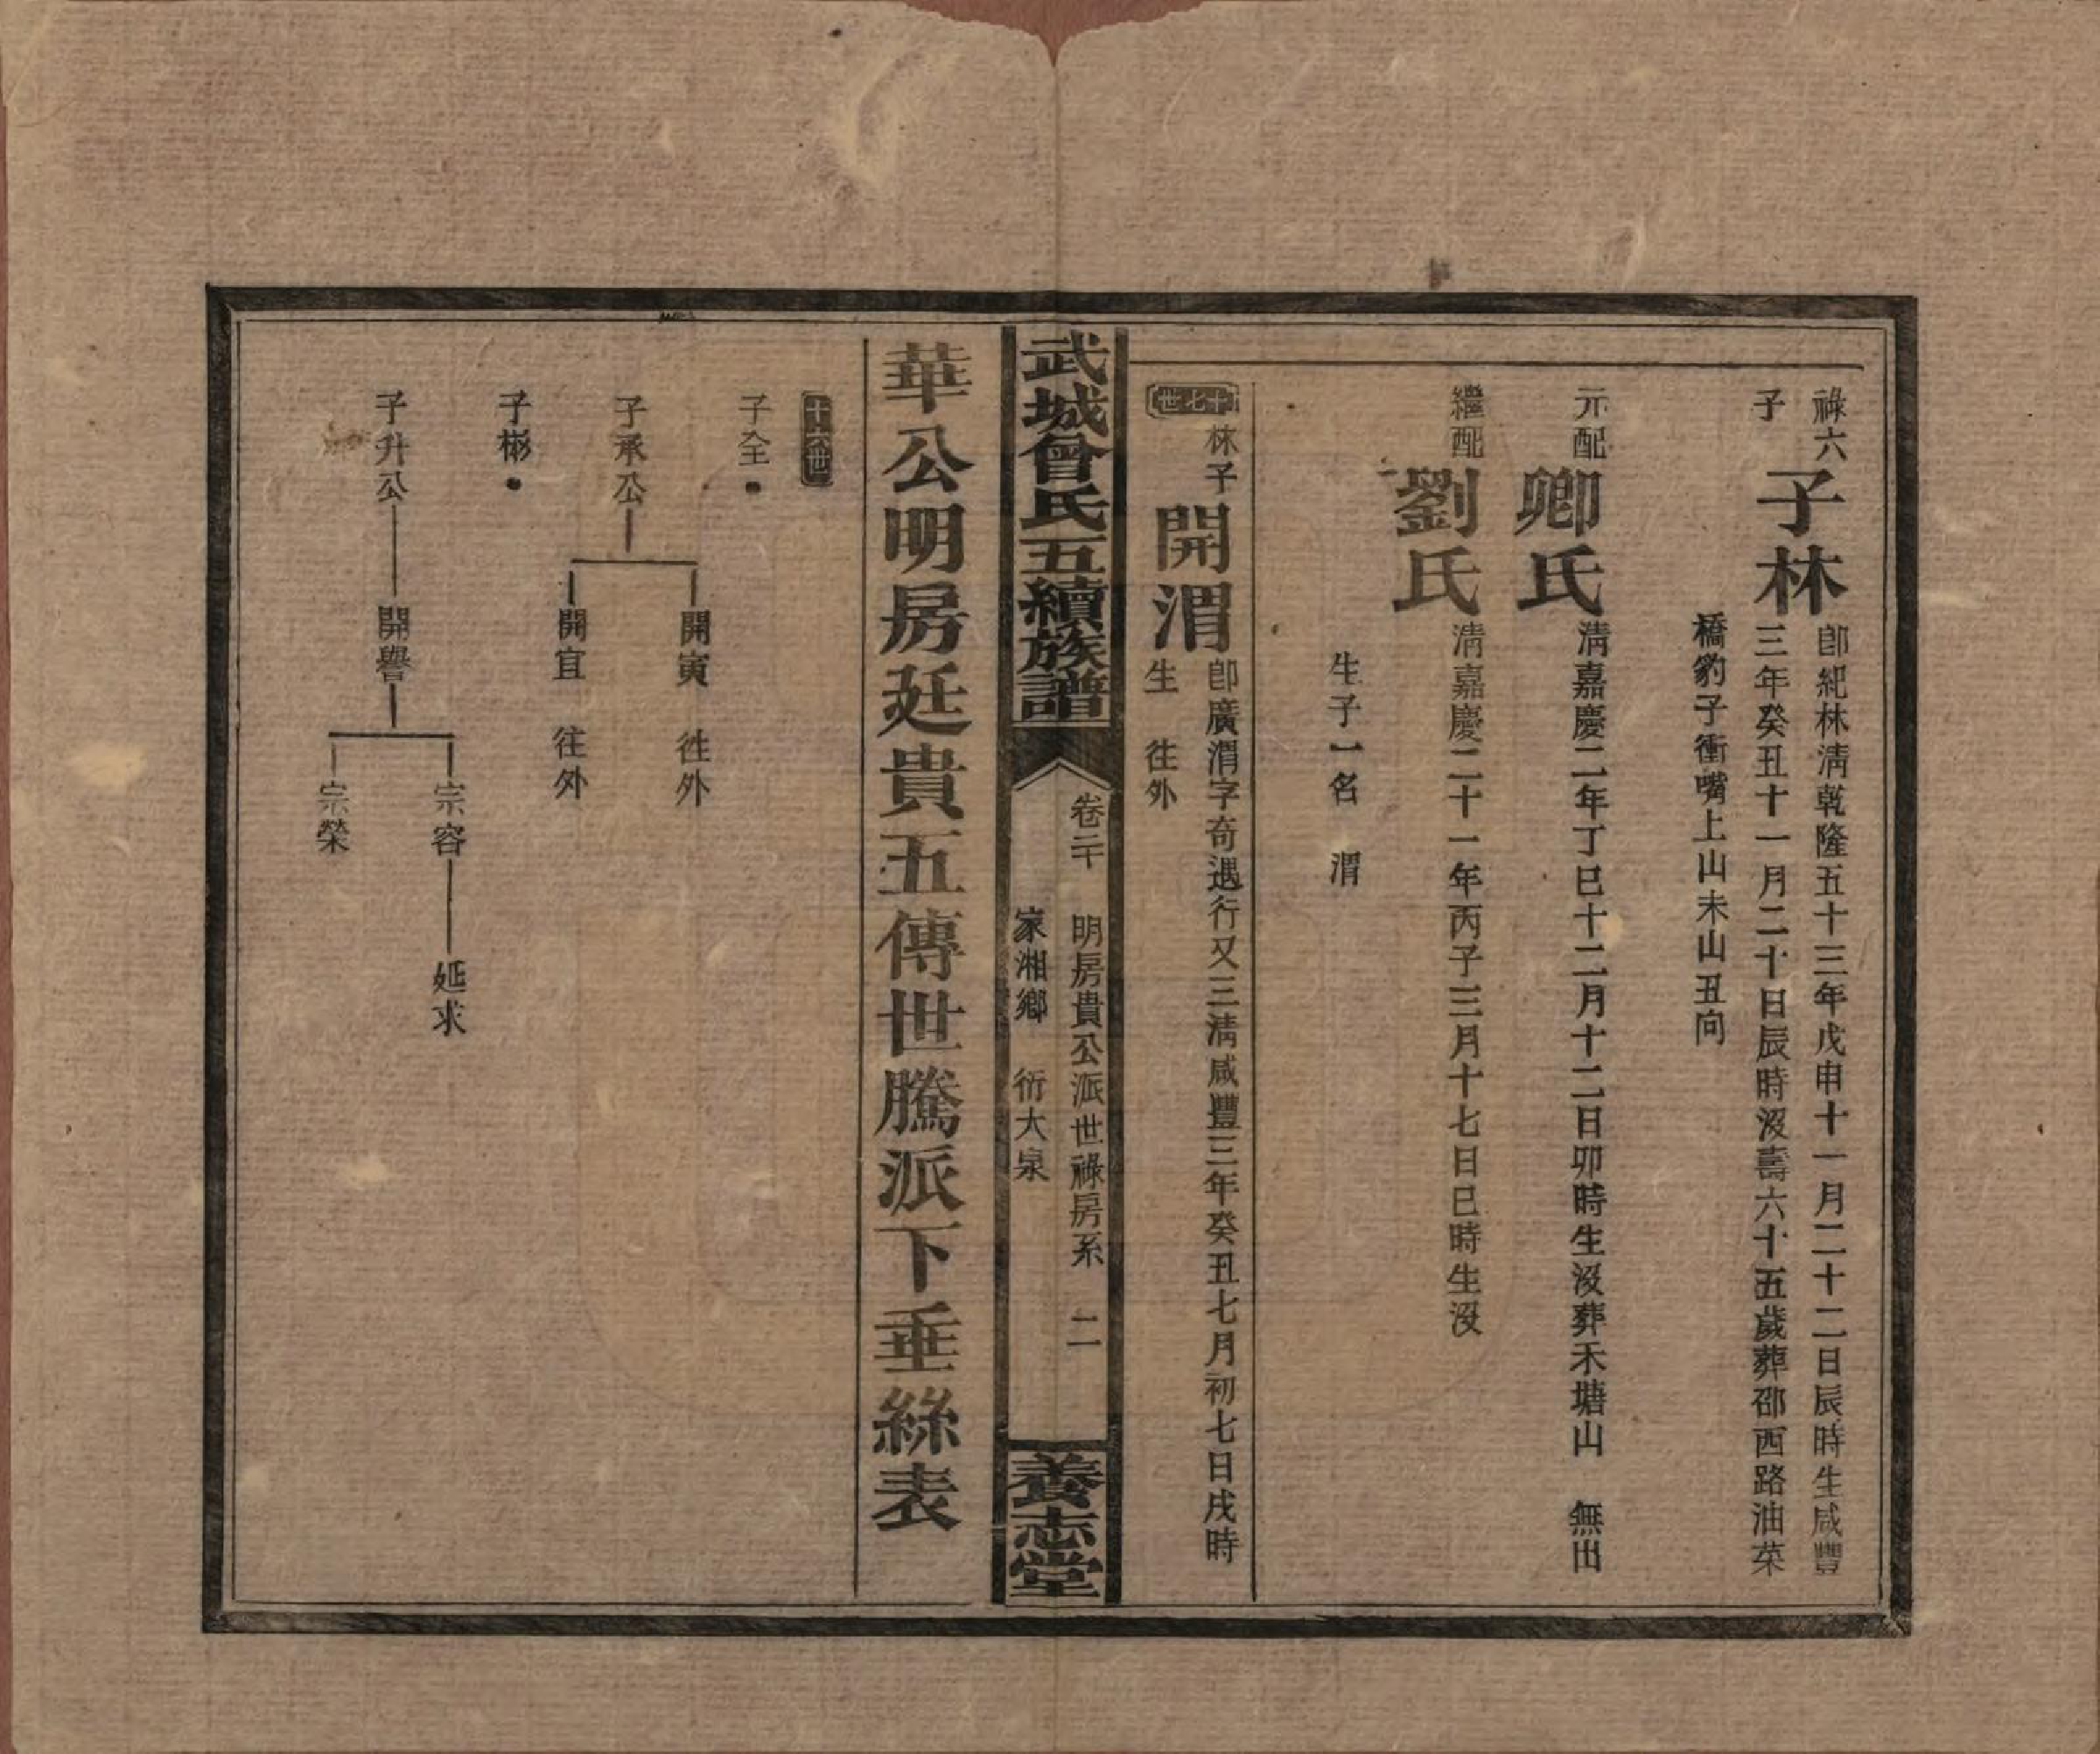 祿六子
子林
即紀林清乾隆五十三年戊申十一月二十二日辰時生咸豐
三年癸丑十一月二十日辰時沒壽六十五歲葬邵西路油菜
橋豹子衝嘴上山未山丑向
元配
卿氏
清嘉慶二年丁巳十二月十二日卯時生沒葬禾塘山 無出
繼配
劉氏
清嘉慶二十一年丙子三月十七日巳時生沒
生子一名 渭
十七世
林子
開渭
即廣渭字奇遇行又三清咸豐三年癸丑七月初七日戌時
生 徃外
武城曾氏五續族譜
卷二十 明房貴公派世祿房系 二
家湘鄉 衍大泉
養志堂
華公明房廷貴五傳世騰派下垂絲表
十六世
子全
子承公
開寅 徃外
開宜 徃外
子彬
子升公
開譽
宗容
延求
宗榮